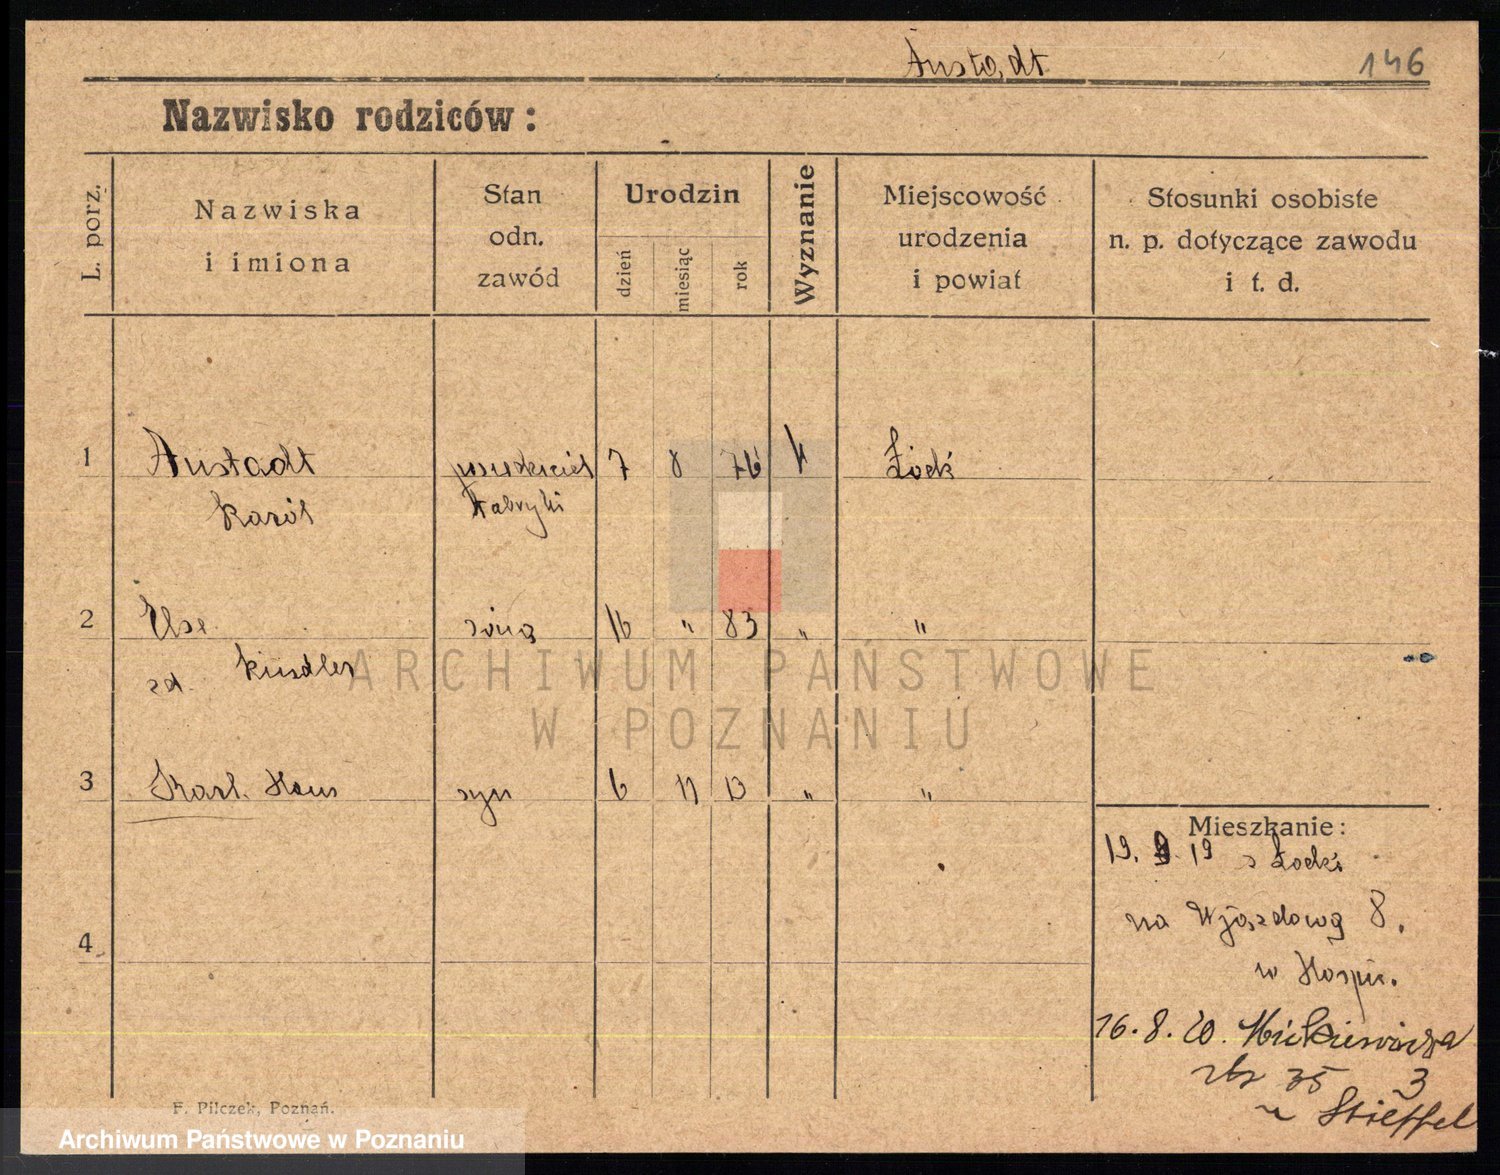 Anstadt 146
Nazwisko rodziców:
L. porz.
Nazwiska
i imiona
Stan
odn.
zawód
Urodzin
dzień
miesiąc
rok
Wyznanie
Miejscowość
urodzenia
i powiat
Stosunki osobiste
n. p. dotyczące zawodu
i t. d.
1 Anstadt 7 8 76 Łódź
Karól fabryki
2 Else żona 16 " 83 " "
zd. Kindler
3 Karl. Hans syn 6 11 13 " "
4
Mieszkanie:
19. 19 z Łodzi
na Wjazdową 8.
w Hospic.
16.8.20. Mickiewicza
35 3
u Stieffel
F. Pilczek, Poznań.
ARCHIWUM PAŃSTWOWE
W POZNANIU
Archiwum Państwowe w Poznaniu